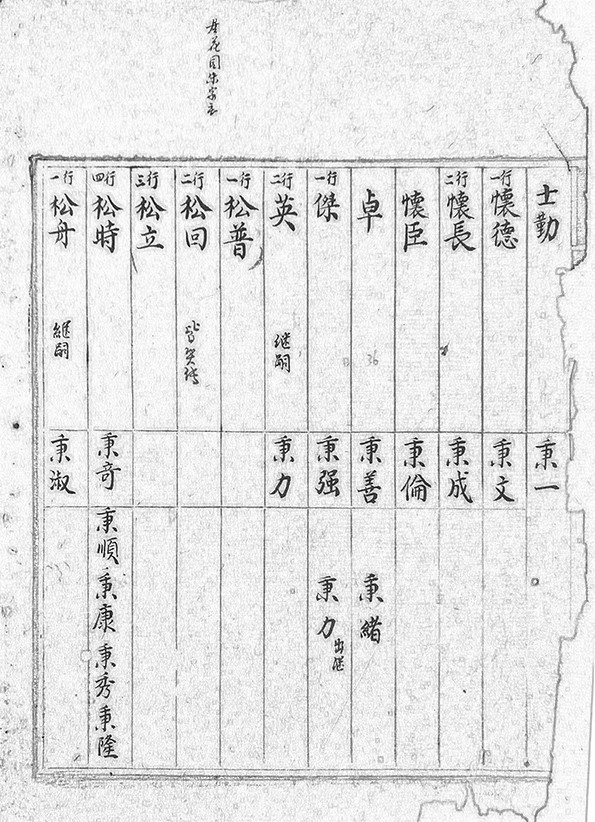 士勤 秉一
一行 懷德 秉文
二行 懷長 秉成
懷臣 秉倫
卓 36 秉善 秉緒
一行 傑 秉强 秉力 出继
二行 英 继嗣 秉力
一行 松普
二行 松回
三行 松立
四行 松時 秉奇 秉順 秉康 秉秀 秉隆
一行 松舟 継嗣 秉淑